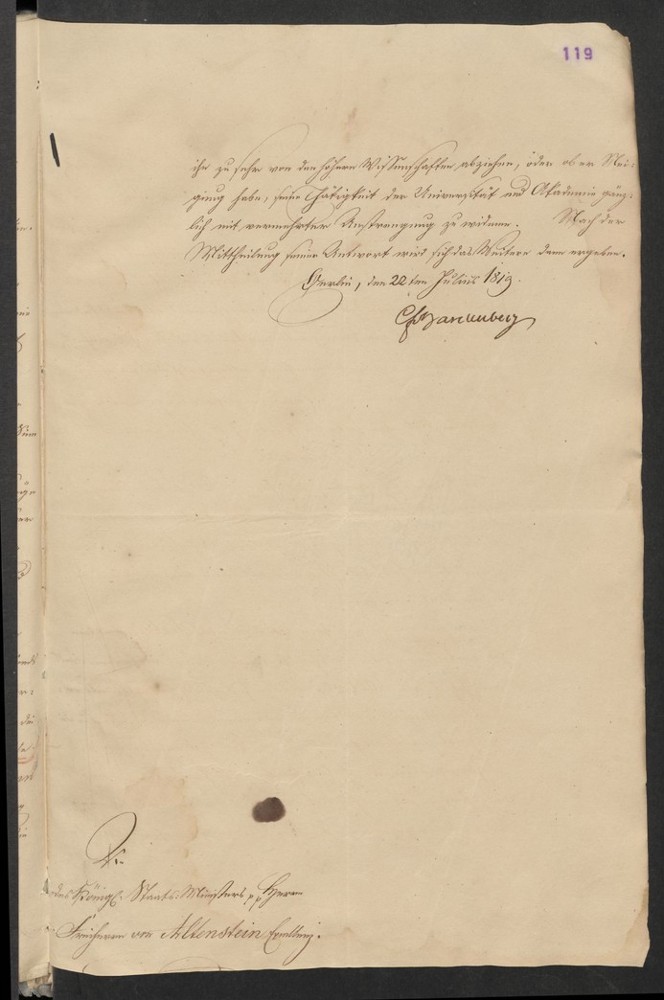 119
ihn zu sehr von den höhern Wissenschaften abziehen, oder ob er Nei-
gung habe, seine Thätigkeit der Universität und Akademie gänz-
lich mit vermehrter Anstrengung zu widmen. Nach der
Mittheilung seiner Antwort wird sich das Weitere dann ergeben.
Berlin, den 22ten Julius 1819.
CfvHardenberg
An
des Königl. Staats-Ministers pp Herrn
Freiherrn von Altenstein Excellenz.